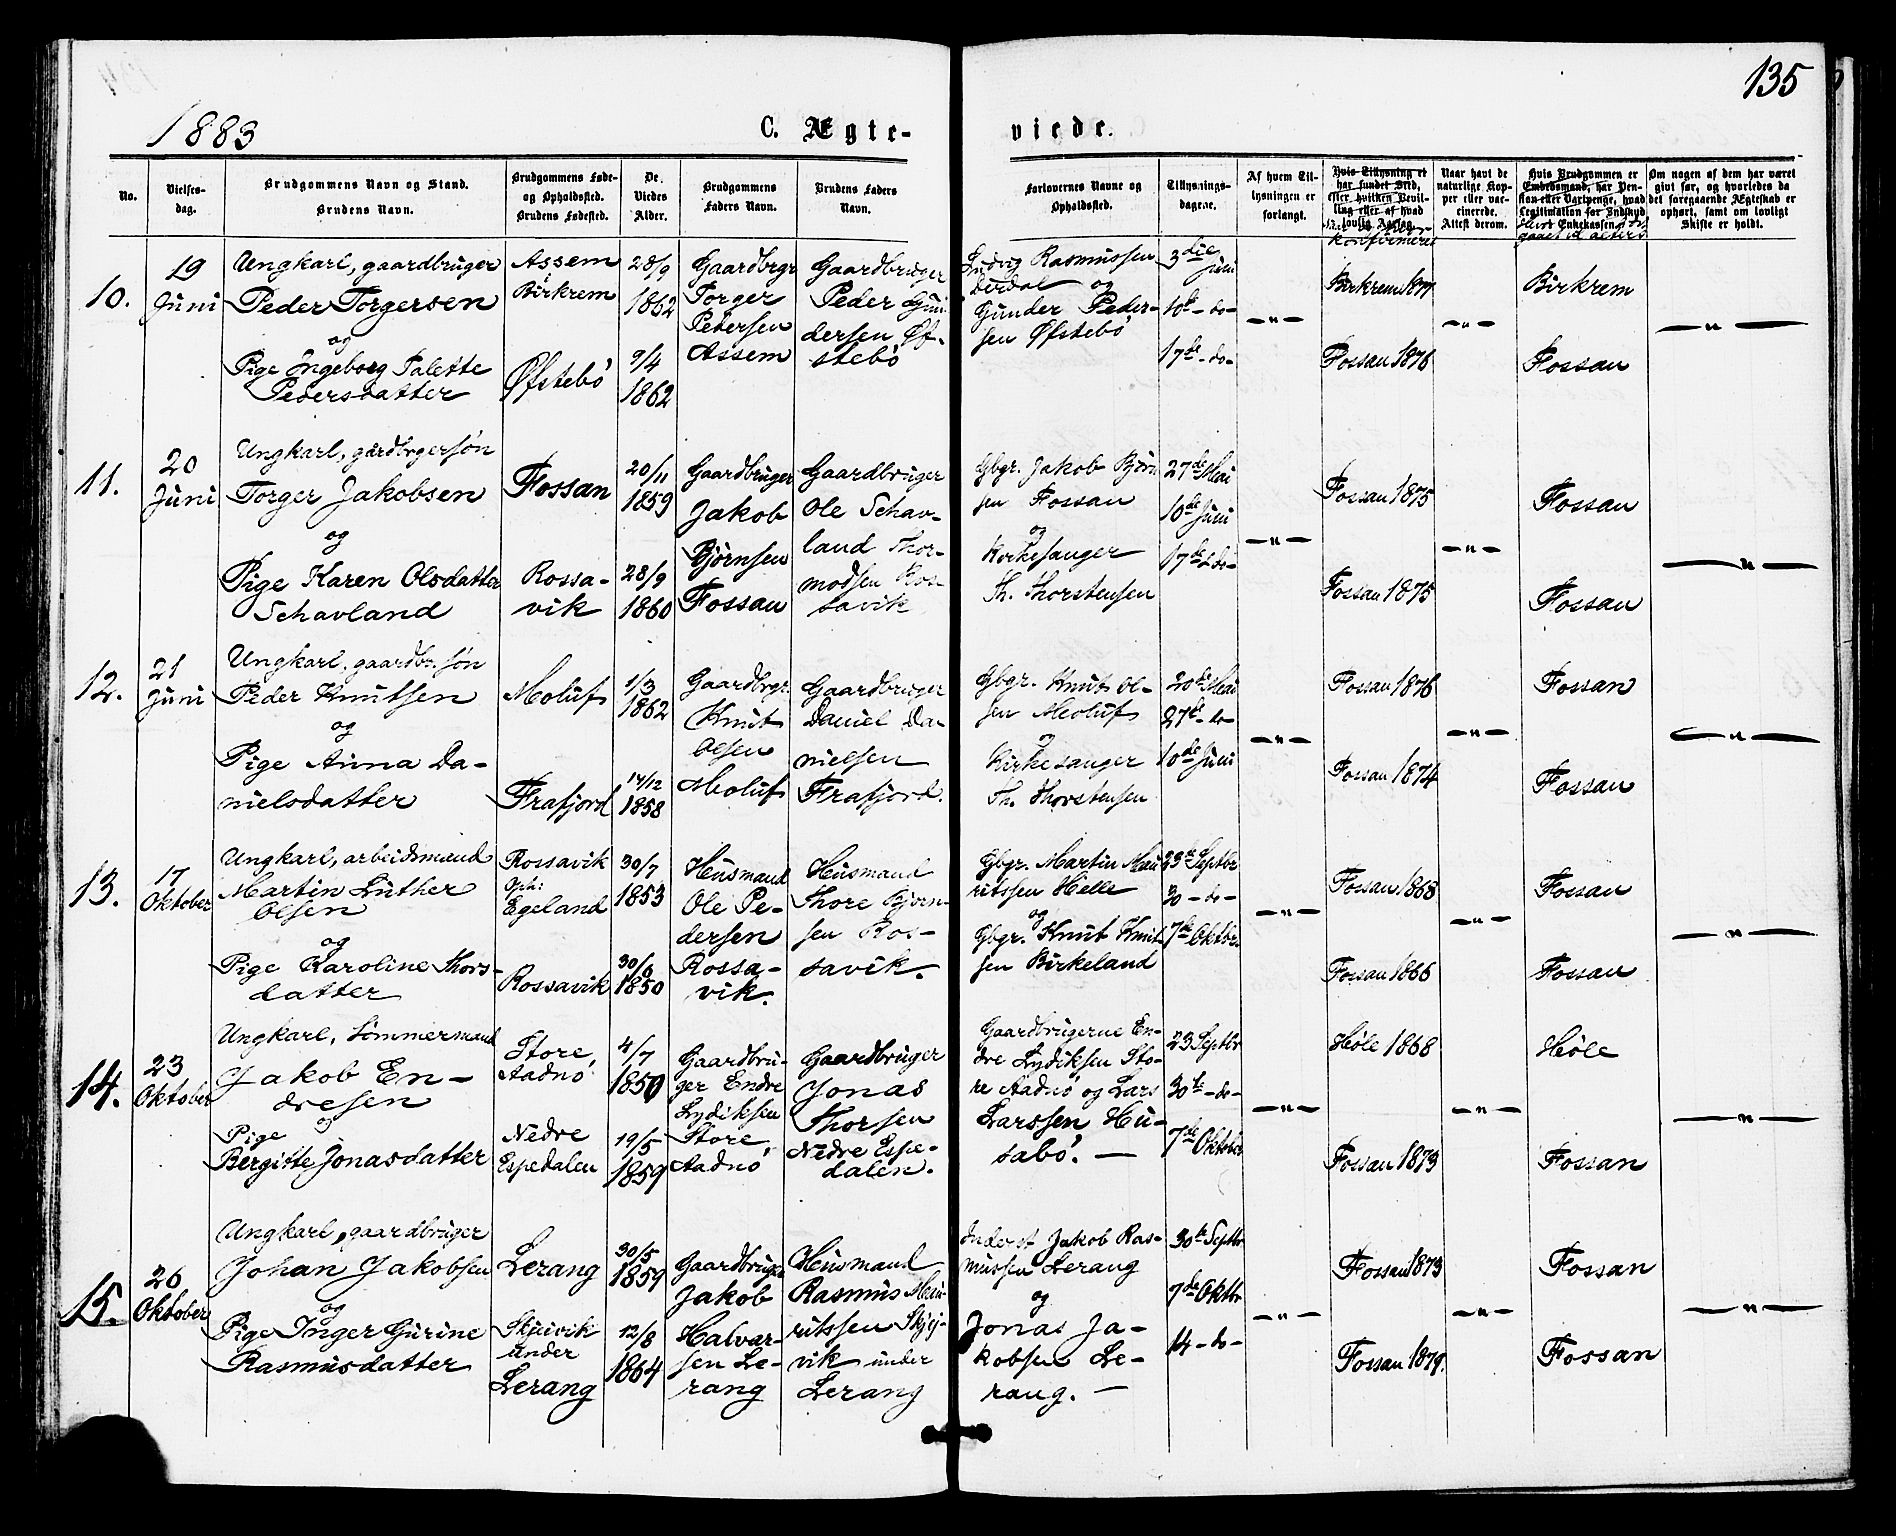 135
1883
C. Ægte-
viede.
No.
Vielses-
dag.
Brudgommens Navn og Stand.
Brudens Navn.
Brudgommens Føde-
og Opholdssted.
Brudens Fødested.
De
Viedes
Alder.
Brudgommens
Faders Navn.
Brudens Faders
Navn.
Forlovernes Navne og
Opholdssted.
Tillysnings-
dagene.
Af hvem Til-
lysningen er
forlangt.
Hvis Tillysning ei
har fundet Sted,
efter hvilken Bevil-
ling eller af hvad
lovlig Aarsag.
konfirmeret
Naar havt de
naturlige Kop-
per eller vac-
cinerede.
Attest derom.
Hvis Brudgommen er
Embedsmand, har Pen-
sion eller Vartpenge, hvad
Legitimation for Indskud
i Enkekassen
gaaet til alters
Om nogen af dem har været
givt før, og hvorledes da
det foregaaende Ægteskab er
ophørt, samt om lovligt
Skifte er holdt.
10.
19
Juni
Ungkarl, gaardbruger
Peder Torgersen
og
Pige Ingeborg Talette
Pedersdatter
Assem
Birkrem
Øfstebö
28/9
1862
9/4
1862
Gaardbrgr
Torger
Pedersen
Assem
Gaardbruger
Peder Gun-
dersen Øf-
stebö
Ludvig Rasmussen
Dirdal og
Gunder Peder-
sen Øfstebö
3die Juni
10de -do-
17de -do-
-"-
Birkrem 1877
Fossan 1876
-"-
Birkrem
Fossan
-"-
11.
20
Juni
Ungkarl, gårdbrgersøn
Torger Jakobsen
og
Pige Karen Olsdatter
Schavland
Fossan
Rossa-
vik
20/11
1859
28/9
1860
Gaardbruger
Jakob
Bjørnsen
Fossan
Gaardbruger
Ole Schav-
land Thor-
modsen Ros-
savik
Gbgr. Jakob Bjørn
sen Fossan
og
Kirkesanger
Th. Thorstensen
27de Mai
10de Juni
17de -do-
-"-
Fossan 1875
Fossan 1875
-"-
Fossan
Fossan
-"-
12.
21
Juni
Ungkarl, gaardbr.søn
Peder Knutsen
og
Pige Anna Da-
nielsdatter
Moluf
Frafjord
1/3
1862
14/12
1858
Gaardbrgr.
Knut
Olsen
Moluf
Gaardbruger
Daniel Da-
nielsen
Frafjord.
Gbgr. Knut Ol-
sen Moluf
og
Kirkesanger
Th. Thorstensen
20de Mai
27de -do-
10de Juni
-"-
Fossan 1876
Fossan 1874
-"-
Fossan
Fossan
-"-
13.
17
Oktober
Ungkarl, arbeidsmand
Martin Luther
Olsen
og
Pige Karoline Thors-
datter
Rossavik
Oph:
Egeland
Rossavik
30/7
1853
30/6
1850
Husmand
Ole Pe-
dersen
Rossa-
vik.
Husmand
Thore Bjørn-
sen Ros-
savik.
Gbgr. Martin Mau
ritssen Helle
og
Gbgr. Knut Knut
sen Birkeland
23de Septbr
30 -do-
7de Oktbr.
-"-
Fossan 1868
Fossan 1866
-"-
Fossan
Fossan
-"-
14.
23
Oktober
Ungkarl, tømmermand
Jakob En-
dresen
og
Pige
Bergitte Jonasdatter
Store,
Aadnö
Nedre
Espedalen
4/7
1850
19/5
1859
Gaardbru-
ger Endre
Lydiksen
Store
Aadnö
Gaardbruger
Jonas
Thorsen
Nedre Espe-
dalen.
Gaardbrugerne En-
dre Lydiksen Sto-
re Aadnö og Lars
Larssen Hu-
sabö. —
23 Septbr
30te -do-
7de Oktober
-"-
Høle 1868
Fossan 1873
-"-
Høle
Fossan
-"-
15.
26
Oktober
Ungkarl, gaardbruger
Johan Jakobsen
og
Pige Inger Gurine
Rasmusdatter
Lerang
Skjeivik
under
Lerang
30/5
1859
12/8
1864
Gaardbruger
Jakob
Halvar-
sen Le-
rang
Husmand
Rasmus Mau-
ritssen Skjej-
vik under
Lerang
Inderst Jakob Ras-
mussen Lerang
og
Jonas Ja-
kobsen Le-
rang. —
30te Septbr
7de Oktbr
14 -do-
-"-
Fossan 1873
Fossan 1879.
-"-
Fossan
Fossan
-"-